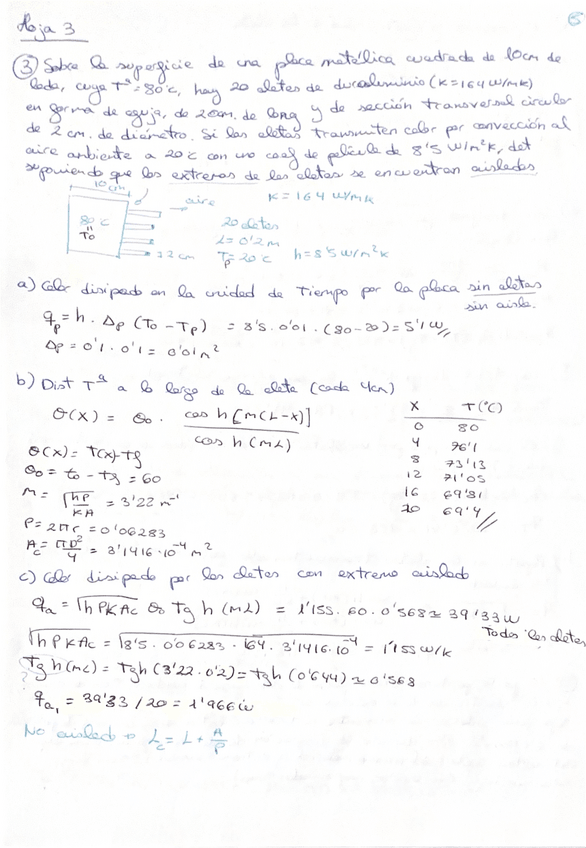 Hoja 3
6
③ Sobre la superficie de una placa metálica cuadrada de 10cm de
lado, cuya Tª = 80°C, hay 20 aletas de duraluminio (K=164 W/mK)
en forma de aguja, de 20cm. de long y de sección transversal circular
de 2 cm. de diámetro. Si las aletas transmiten calor por convección al
aire ambiente a 20°C con una coef de película de 8'5 W/m²K, det
suponiendo que los extremos de las aletas se encuentran aislados
10cm
aire
K = 164 W/mK
80°C
To
20 aletas
L = 0'2 m
Tp = 20°C h = 8'5 W/m²K
2 cm
a) Calor disipado en la unidad de Tiempo por la placa sin aletas
sin aisla.
qp = h · Ap (To - Tp) = 8'5 · 0'01 · (80-20) = 5'1 W
Ap = 0'1 · 0'1 = 0'01 m²
b) Dist Tª a lo largo de la aleta (cada 4cm)
θ(x) = θo · cos h [m(L-x)] / cos h (mL)
θ(x) = T(x) - Tf
θo = to - Tf = 60
m = √hP/KA = 3'22 m⁻¹
P = 2πr = 0'06283
Ac = πD²/4 = 3'1416·10⁻⁴ m²
X T(°C)
0 80
4 76'1
8 73'13
12 71'05
16 69'81
20 69'4
c) Calor disipado por las aletas con extremo aislado
qa = √hPKAc θo Tg h (mL) = 1'155 · 60 · 0'568 ≅ 39'33 W
Todas las aletas
√hPKAc = √8'5 · 0'06283 · 164 · 3'1416·10⁻⁴ = 1'155 W/K
Tg h (mL) = Tgh (3'22 · 0'2) = tgh (0'644) ≅ 0'568
?
qa₁ = 39'33 / 20 = 1'966 W
No aislado → Lc = L + A/P